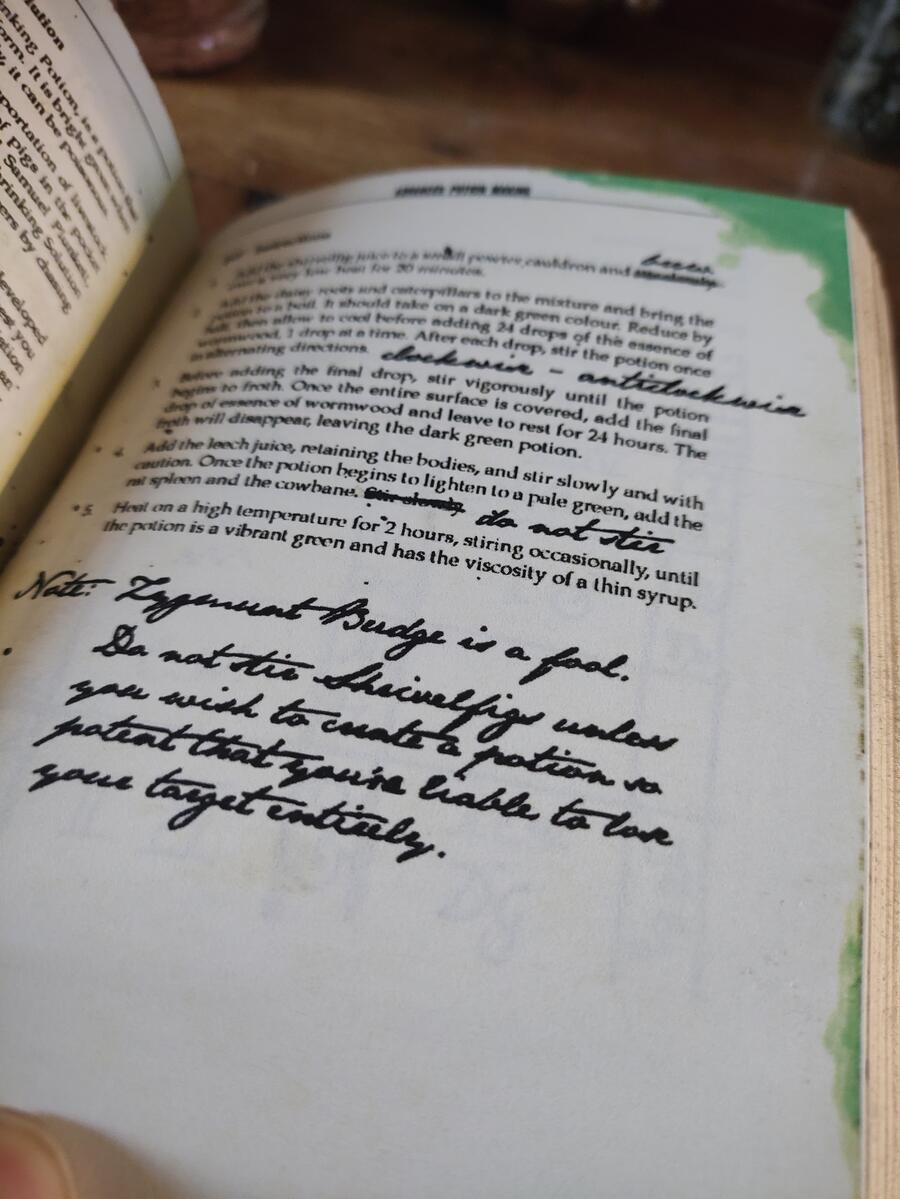 lution
nking Potion, is a potion that
form. It is bright green when
it can be poisonous.
portation of livestock
of pigs in the pocket
Samuel Plunkett
rinking Solution
ers by changing
developed
you
ation
en"
ADVANCED POTION MAKING
Instructions
1. Add the shrivelfig juice to a small pewter cauldron and
over a very low heat for 20 minutes.
2. Add the daisy roots and caterpillars to the mixture and bring the
potion to a boil. It should take on a dark green colour. Reduce by
half, then allow to cool before adding 24 drops of the essence of
wormwood, 1 drop at a time. After each drop, stir the potion once
in alternating directions. clockwise – anticlockwise
3. Before adding the final drop, stir vigorously until the potion
begins to froth. Once the entire surface is covered, add the final
drop of essence of wormwood and leave to rest for 24 hours. The
froth will disappear, leaving the dark green potion.
4. Add the leech juice, retaining the bodies, and stir slowly and with
caution. Once the potion begins to lighten to a pale green, add the
rat spleen and the cowbane. Stir slowly do not stir
5. Heat on a high temperature for 2 hours, stiring occasionally, until
the potion is a vibrant green and has the viscosity of a thin syrup.
Note: Zygmunt Budge is a fool.
Do not stir Shrivelfigs unless
you wish to create a potion so
potent that you're liable to lose
your target entirely.